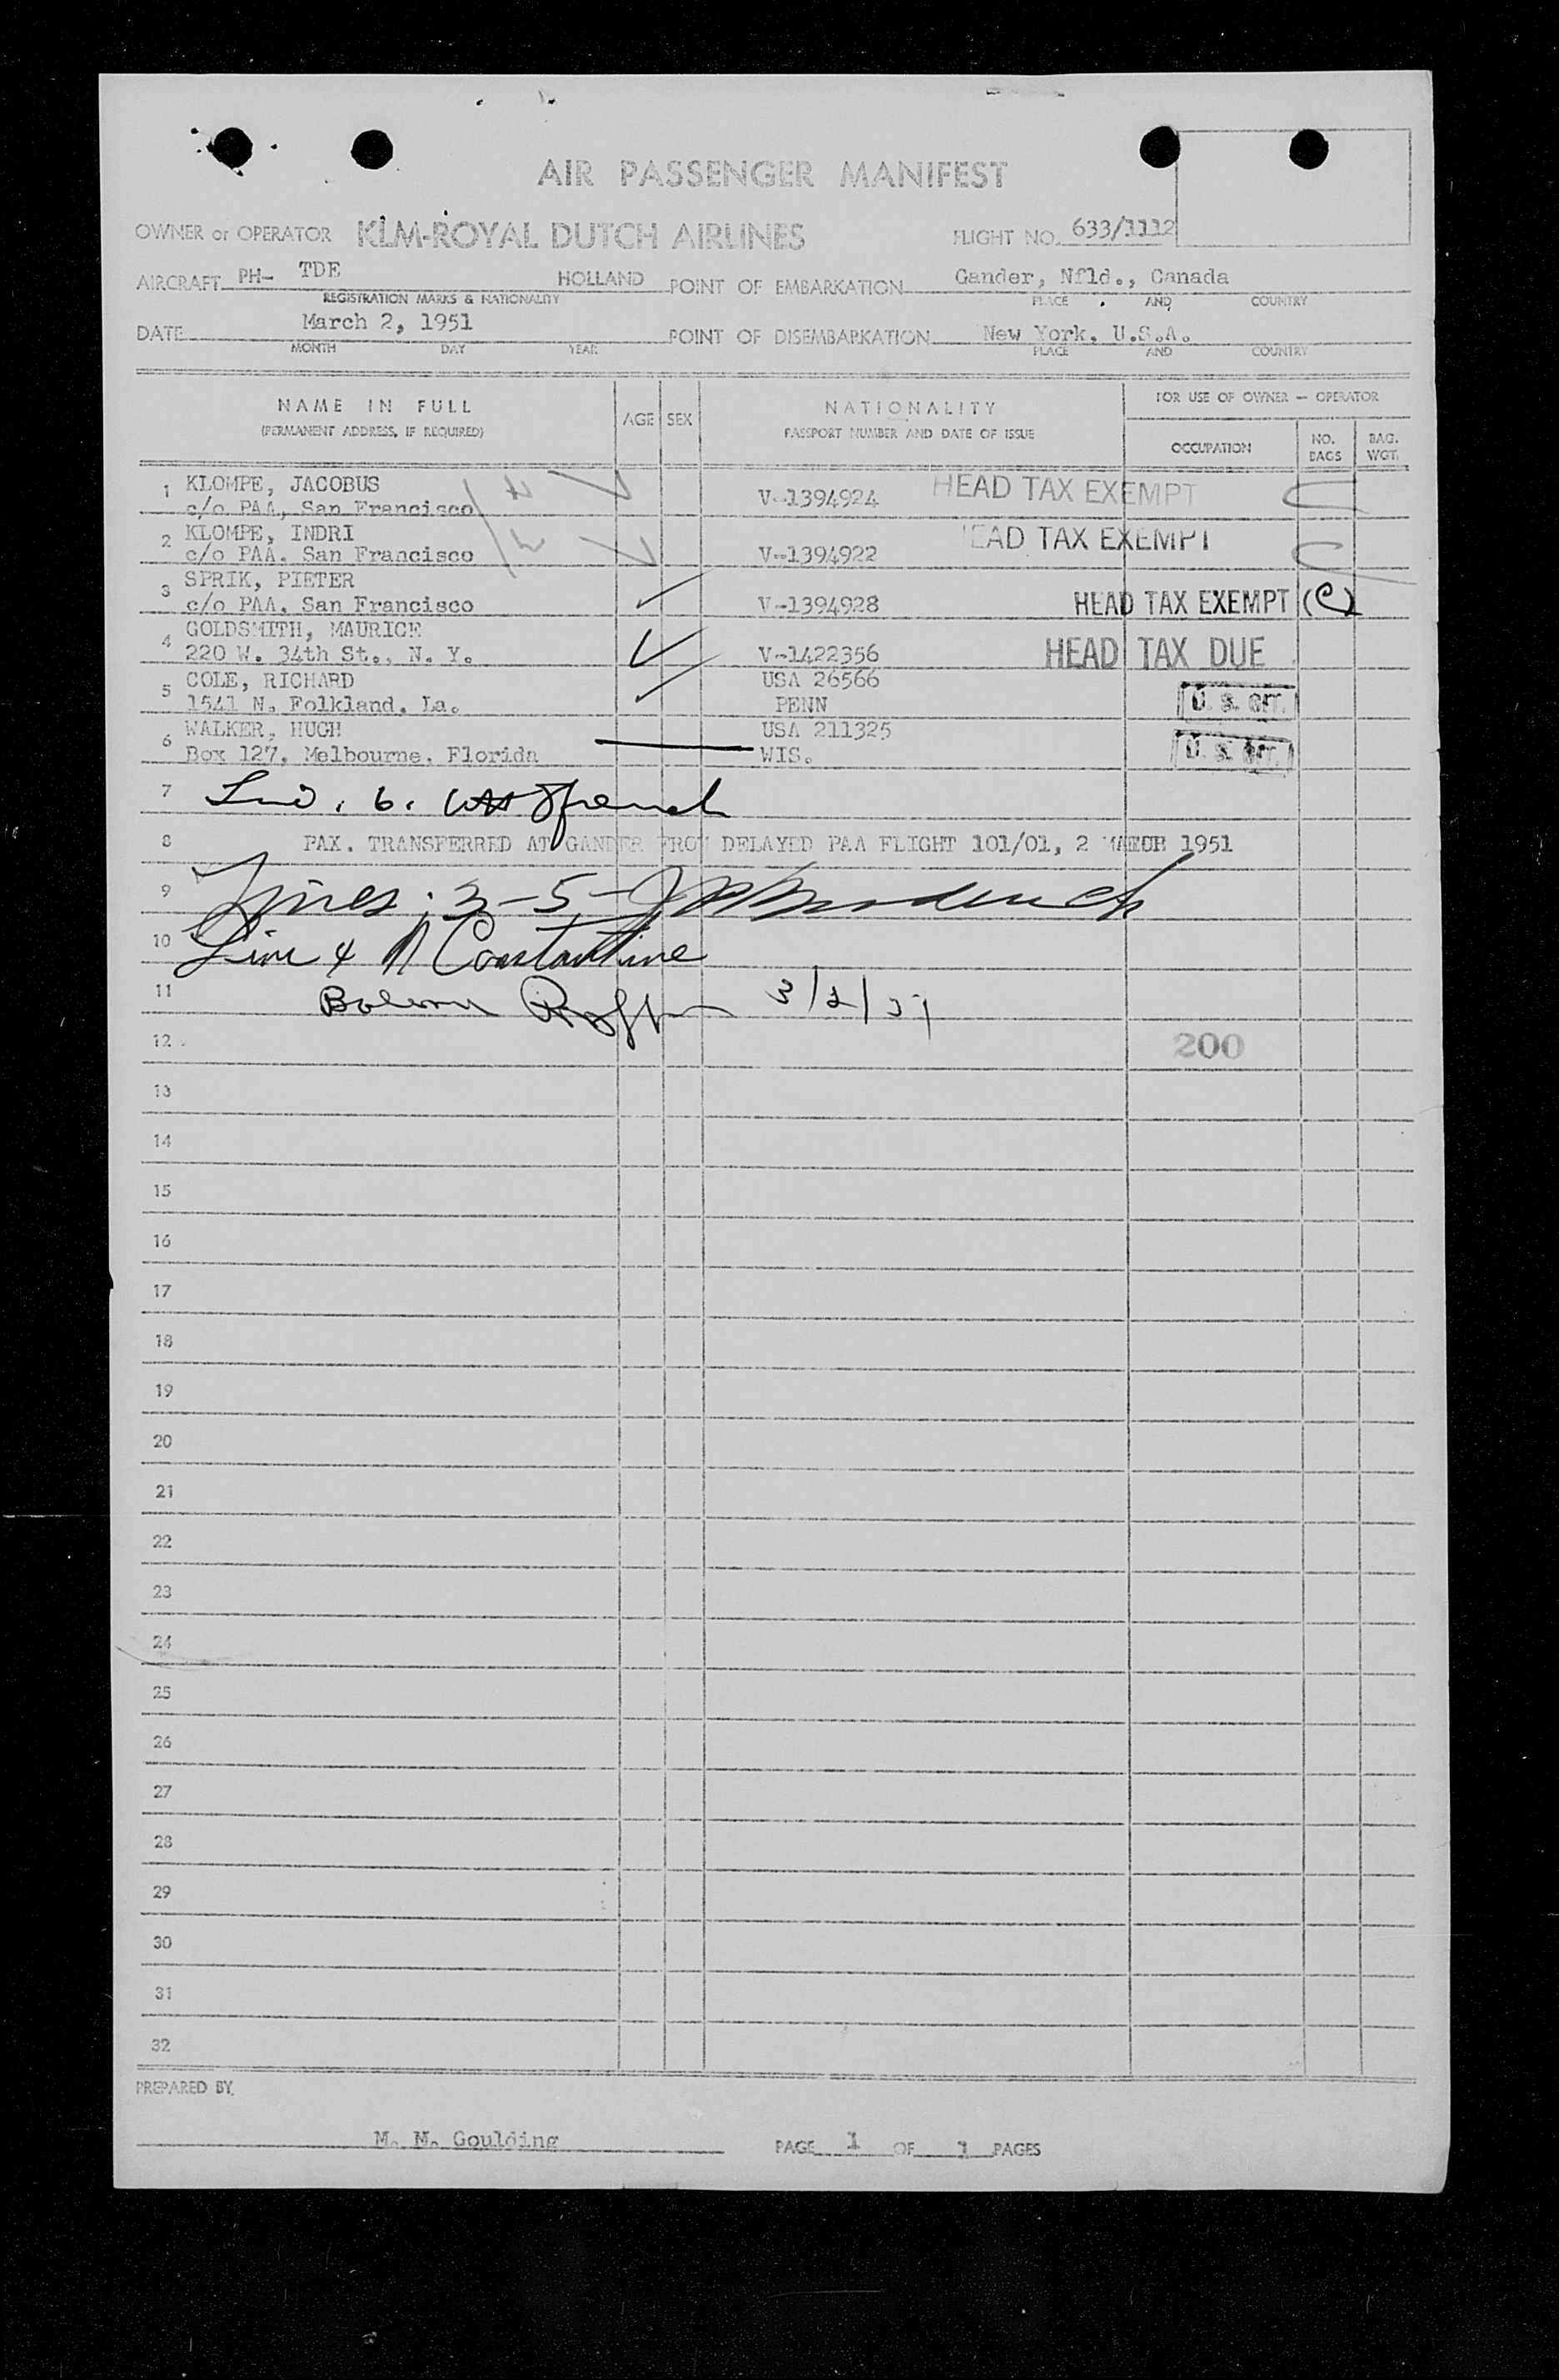 AIR PASSENGER MANIFEST
OWNER or OPERATOR KLM-ROYAL DUTCH AIRLINES FLIGHT NO. 633/1112
AIRCRAFT PH- TDE HOLLAND POINT OF EMBARKATION Gander, Nfld., Canada
REGISTRATION MARKS & NATIONALITY PLACE AND COUNTRY
DATE March 2, 1951 POINT OF DISEMBARKATION New York, U.S.A.
MONTH DAY YEAR PLACE AND COUNTRY
NAME IN FULL AGE SEX NATIONALITY FOR USE OF OWNER — OPERATOR
(PERMANENT ADDRESS, IF REQUIRED) PASSPORT NUMBER AND DATE OF ISSUE OCCUPATION NO. BAGS BAG. WGT.
1 KLOMPE, JACOBUS HEAD TAX EXEMPT
c/o PAA, San Francisco V-1394924
2 KLOMPE, INDRI EAD TAX EXEMPT
c/o PAA. San Francisco V-1394922
3 SPRIK, PIETER
c/o PAA. San Francisco V-1394928 HEAD TAX EXEMPT (C)
4 GOLDSMITH, MAURICE
220 W. 34th St., N. Y. V-1422356 HEAD TAX DUE
5 COLE, RICHARD USA 26566
1541 N. Folkland. La. PENN U. S. CIT.
6 WALKER, HUGH USA 211325
Box 127, Melbourne, Florida WIS. U. S. CIT.
7 6.
8 PAX. TRANSFERRED AT GANDER FROM DELAYED PAA FLIGHT 101/01, 2 MARCH 1951
9 Lines: 3-5-
10 Line 4 Constantine
11 3/2/51
12 200
13
14
15
16
17
18
19
20
21
22
23
24
25
26
27
28
29
30
31
32
PREPARED BY
M. M. Goulding PAGE 1 OF 1 PAGES